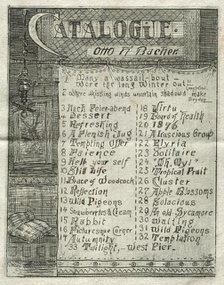 CATALOGUE.
Otto H. Bacher
1 Many a wassail-bout
Wore the long Winter out
2 Where shifting winds unwilling shadows make
3 Jach Feier-abend
4 Dessert
5 Refreshing
6 A Plenish Jug
7 Tempting Offer
8 Patience
9 Help your self
10 Still Life
11 Brace of Woodcock
12 Reflection
13 Wild Pigeons
14 Strawberries & Cream
15 Rabbit
16 Picturesque Corner
17 Autumnity
18 Virtu
19 Bread of Health
20 1876
21 A Luscious Group
22 Elyria
23 Solitaire
24 "Oh, My!"
25 Tropical Fruit
26 Cluster
27 Apple Blossoms
28 Solacious
29 An old Sycamore
30 Waiting
31 Wild Pigeons
32 Temptation
33 Twilight, West Pier.